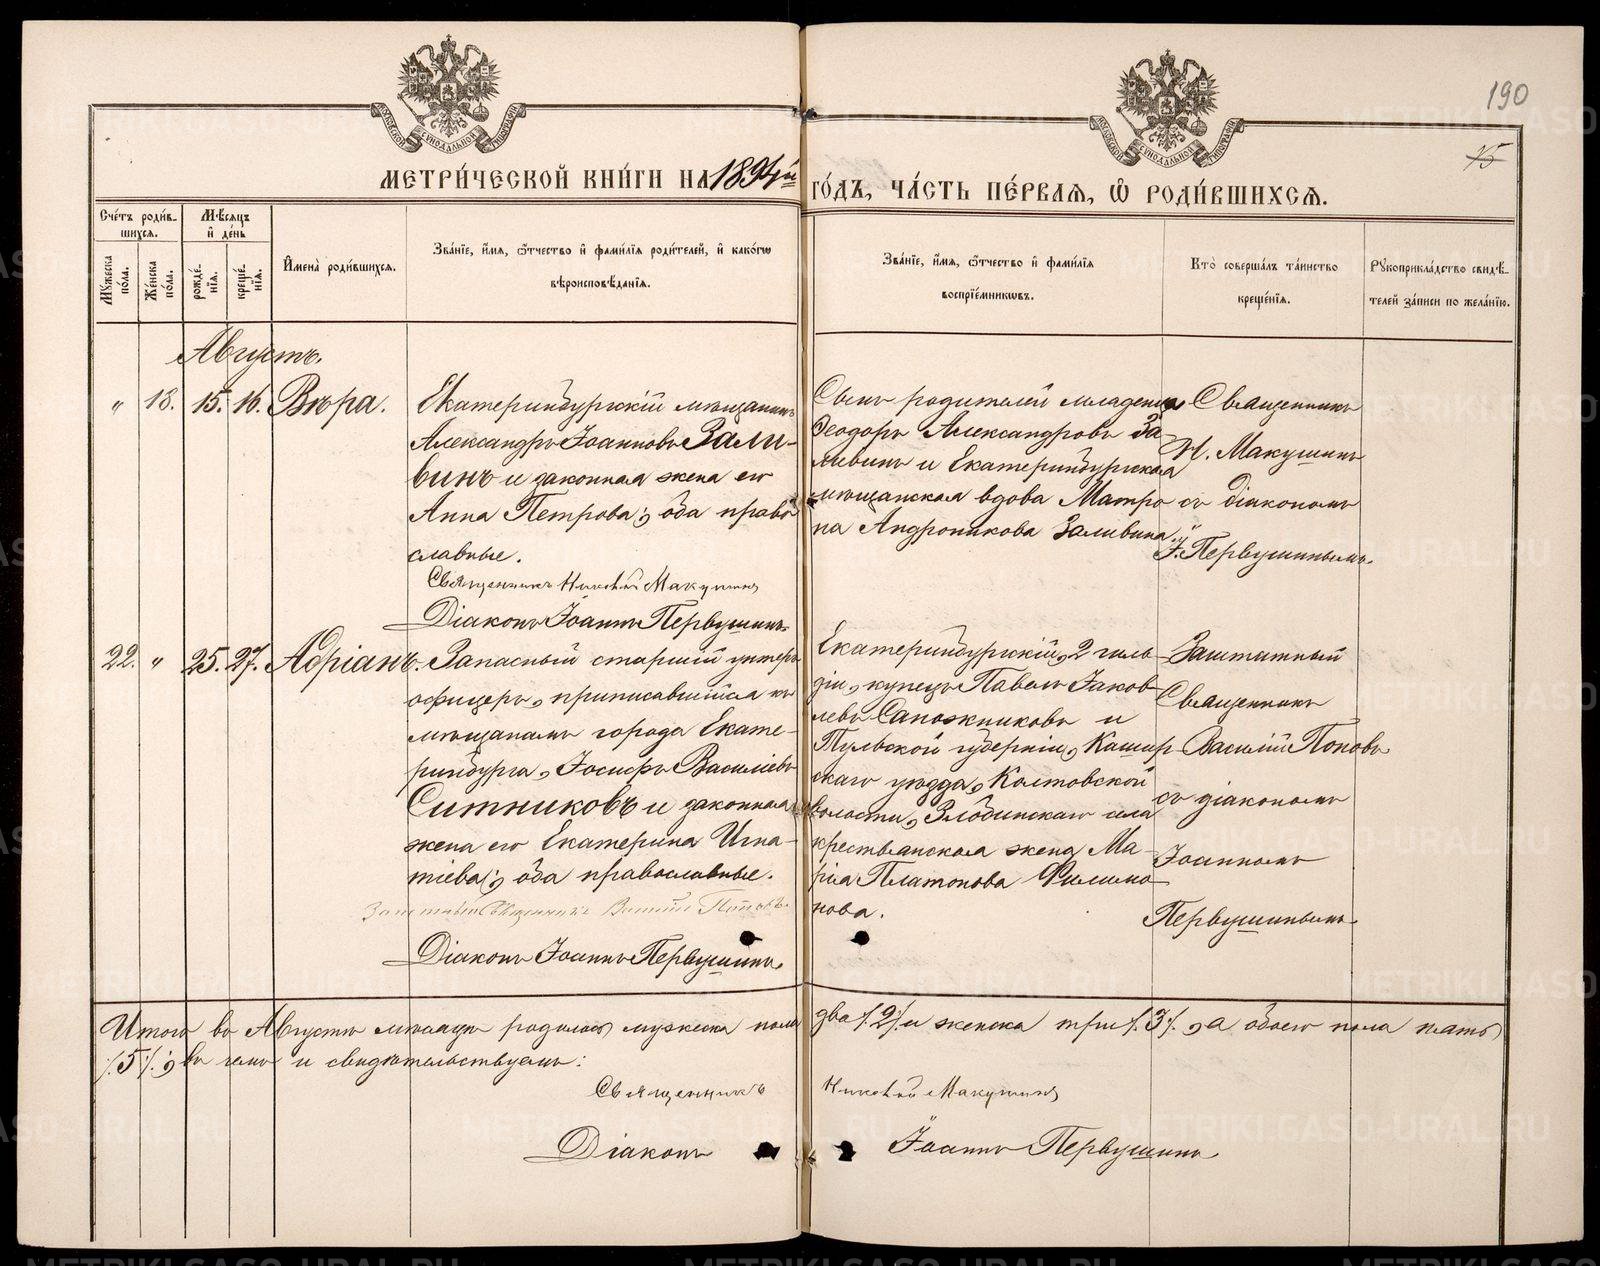 190
15
МОСКОВСКОЙ СѴНОДАЛЬНОЙ ТИПОГРАФІИ
МОСКОВСКОЙ СѴНОДАЛЬНОЙ ТИПОГРАФІИ
МЕТРИ́ЧЕСКОЙ КНИ́ГИ НА 1894й ГО́ДЪ, ЧА́СТЬ ПЕ́РВАѦ, Ѡ҆ РОДИ́ВШИХСѦ.
Сче́тъ роди́в-
шихсѧ.
Мѣ́сѧцъ
и҆ де́нь
Мꙋ́жеска
по́ла.
Же́нска
по́ла.
рожде́-
нїѧ.
креще́-
нїѧ.
И҆мена̀ роди́вшихсѧ.
Зва́нїе, и҆́мѧ, ѻ҆́тчество и҆ фами́лїѧ роди́телей, и҆ како́гѡ
вѣроисповѣ́данїѧ.
Зва́нїе, и҆́мѧ, ѻ҆́тчество и҆ фами́лїѧ
воспрїе́мникѡвъ.
Кто̀ соверша́лъ та́инство
креще́нїѧ.
Рꙋкоприкла́дство свидѣ́-
телей за́писи по жела́нїю.
Августъ.
" 18. 15. 16. Вѣра.
Екатеринбургскій мѣщанинъ
Александръ Іоанновъ Зали-
винъ и законная жена его
Анна Петрова; оба право-
славные.
Священникъ Николай Макушинъ
Діаконъ Іоаннъ Первушинъ.
Сынъ родителей младенца
Ѳеодоръ Александровъ За-
ливинъ и Екатеринбургская
мѣщанская вдова Матро
на Андроникова Заливина.
Священникъ
Н. Макушинъ
съ діакономъ
І. Первушинымъ.
22. " 25. 27. Адріанъ.
Запасный старшій унтеръ
офицеръ, приписавшійся къ
мѣщанамъ города Екате-
ринбурга, Іосифъ Василіевъ
Ситниковъ и законная
жена его Екатерина Игна-
тіева; оба православные.
Заштатный Священникъ Василій Поповъ.
Діаконъ Іоаннъ Первушинъ.
Екатеринбургскій, 2 гиль-
діи, купецъ Павелъ Іаков-
левъ Сапожниковъ и
Тульской губерніи, Кашир-
скаго уѣзда, Колтовской
волости, Злобинскаго села
крестьянская жена Ма-
рія Платонова Филимо-
нова.
Заштатный
Священникъ
Василій Поповъ
съ діакономъ
Іоанномъ
Первушинымъ.
Итого въ Августѣ мѣсяцѣ родилось мужеска пола два /. 2 ./ и женска три /. 3 ./, а обоего пола пять
/. 5 ./; въ чемъ и свидѣтельствуемъ:
Священникъ Николай Макушинъ
Діаконъ Іоаннъ Первушинъ.
METRIKI.GASO-URAL.RU